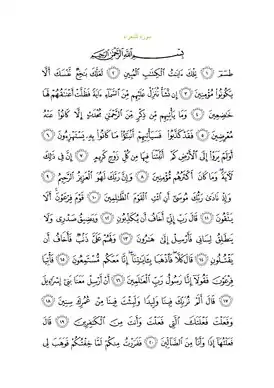 سورة الشعراء
بِسْمِ ٱللَّهِ ٱلرَّحْمَٰنِ ٱلرَّحِيمِ
طسٓمٓ ١ تِلْكَ ءَايَٰتُ ٱلْكِتَٰبِ ٱلْمُبِينِ ٢ لَعَلَّكَ بَٰخِعٌ نَّفْسَكَ أَلَّا
يَكُونُوا۟ مُؤْمِنِينَ ٣ إِن نَّشَأْ نُنَزِّلْ عَلَيْهِم مِّنَ ٱلسَّمَآءِ ءَايَةً فَظَلَّتْ أَعْنَٰقُهُمْ لَهَا
خَٰضِعِينَ ٤ وَمَا يَأْتِيهِم مِّن ذِكْرٍ مِّنَ ٱلرَّحْمَٰنِ مُحْدَثٍ إِلَّا كَانُوا۟ عَنْهُ
مُعْرِضِينَ ٥ فَقَدْ كَذَّبُوا۟ فَسَيَأْتِيهِمْ أَنۢبَٰٓؤُا۟ مَا كَانُوا۟ بِهِۦ يَسْتَهْزِءُونَ ٦
أَوَلَمْ يَرَوْا۟ إِلَى ٱلْأَرْضِ كَمْ أَنۢبَتْنَا فِيهَا مِن كُلِّ زَوْجٍ كَرِيمٍ ٧ إِنَّ فِى ذَٰلِكَ
لَءَايَةً وَمَا كَانَ أَكْثَرُهُم مُّؤْمِنِينَ ٨ وَإِنَّ رَبَّكَ لَهُوَ ٱلْعَزِيزُ ٱلرَّحِيمُ ٩
وَإِذْ نَادَىٰ رَبُّكَ مُوسَىٰٓ أَنِ ٱئْتِ ٱلْقَوْمَ ٱلظَّٰلِمِينَ ١٠ قَوْمَ فِرْعَوْنَ أَلَا
يَتَّقُونَ ١١ قَالَ رَبِّ إِنِّىٓ أَخَافُ أَن يُكَذِّبُونِ ١٢ وَيَضِيقُ صَدْرِى وَلَا
يَنطَلِقُ لِسَانِى فَأَرْسِلْ إِلَىٰ هَٰرُونَ ١٣ وَلَهُمْ عَلَىَّ ذَنۢبٌ فَأَخَافُ أَن
يَقْتُلُونِ ١٤ قَالَ كَلَّا فَٱذْهَبَا بِـَٔايَٰتِنَآ إِنَّا مَعَكُم مُّسْتَمِعُونَ ١٥ فَأْتِيَا
فِرْعَوْنَ فَقُولَآ إِنَّا رَسُولُ رَبِّ ٱلْعَٰلَمِينَ ١٦ أَنْ أَرْسِلْ مَعَنَا بَنِىٓ إِسْرَٰٓءِيلَ
١٧ قَالَ أَلَمْ نُرَبِّكَ فِينَا وَلِيدًا وَلَبِثْتَ فِينَا مِنْ عُمُرِكَ سِنِينَ ١٨
وَفَعَلْتَ فَعْلَتَكَ ٱلَّتِى فَعَلْتَ وَأَنتَ مِنَ ٱلْكَٰفِرِينَ ١٩ قَالَ
فَعَلْتُهَآ إِذًا وَأَنَا۠ مِنَ ٱلضَّآلِّينَ ٢٠ فَفَرَرْتُ مِنكُمْ لَمَّا خِفْتُكُمْ فَوَهَبَ لِى